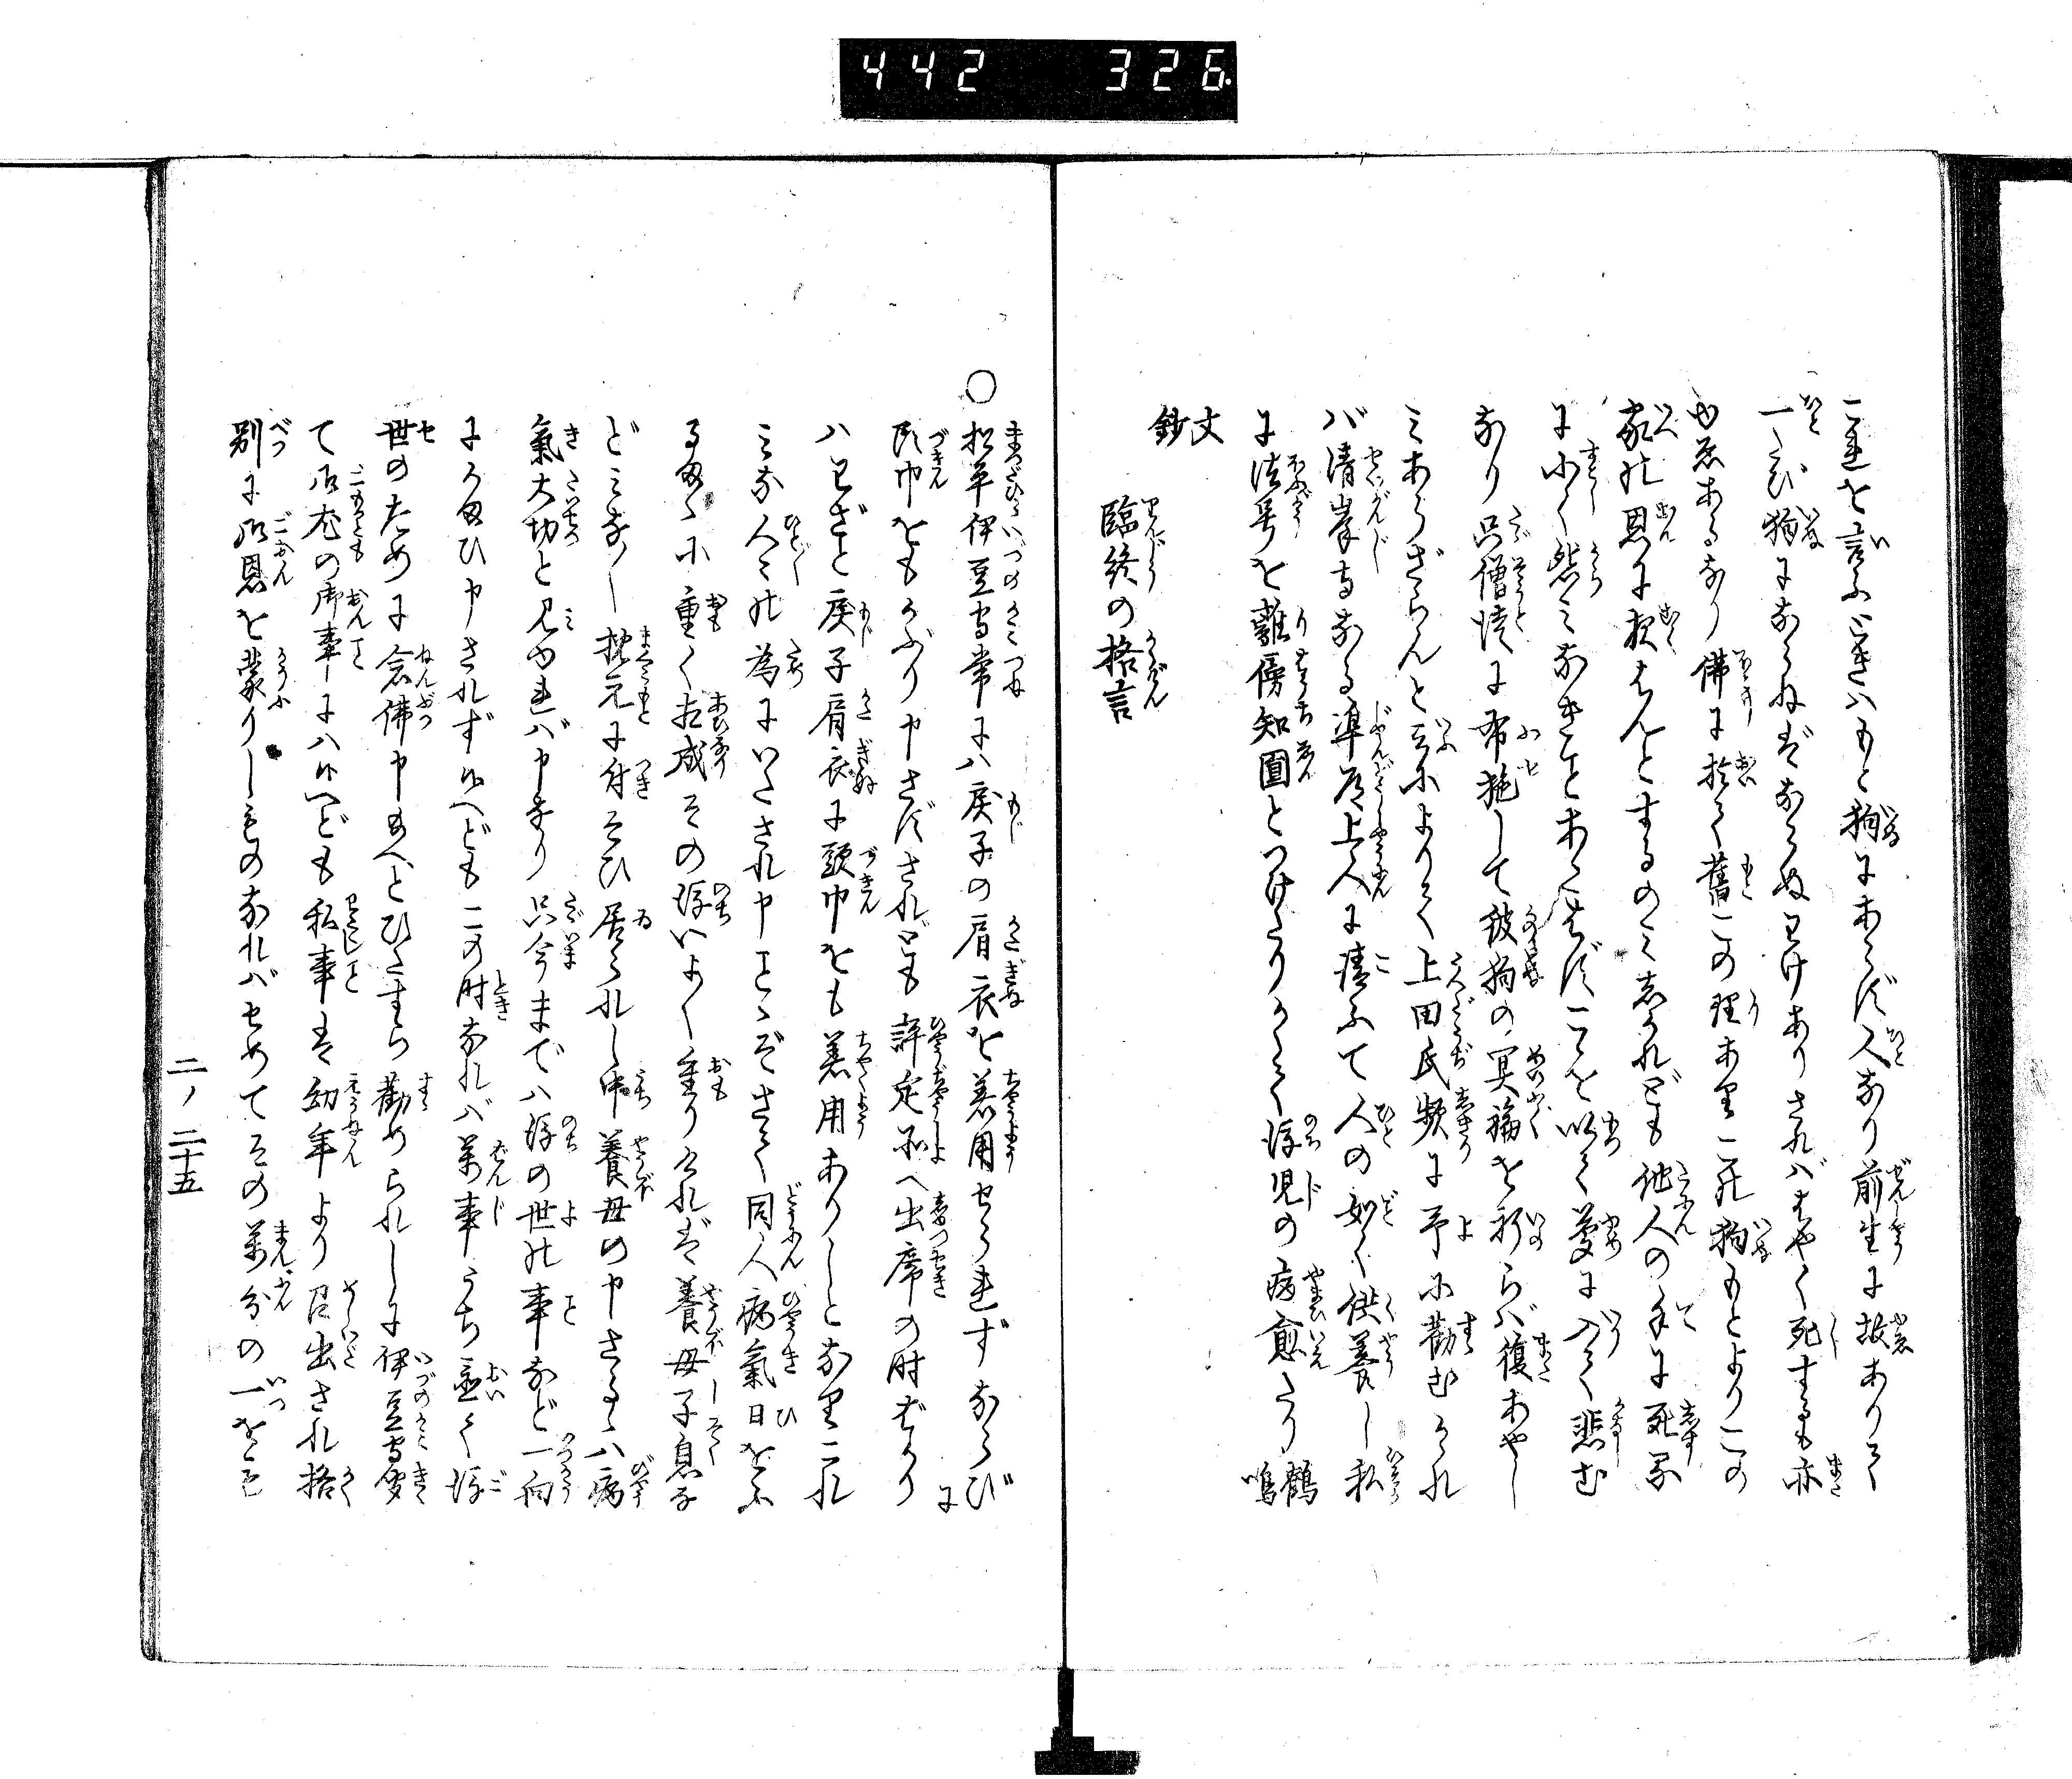 442 326
これを言ふときハもと狗にあらず人なり前生に故ありて
一たび狗にならねばならぬわけありされバはやく死するも亦
ゆゑあるなり佛に於て舊この理あり此狗もとよりこの
家の恩に報はんとするのミしかれども他人の手に死る
に小く怨ミなきことあたはずこゝを以て夢に入て悲む
なり只僧徒に布施して彼狗の冥福を祈らバ復あやし
ミあらざらんと云ふよりて上田氏頻に予に勸むされ
バ清岸寺なる準道上人に請ふて人の如く供養し私
に法号を離傍知圓とつけたりかくて後児の病愈たり 鶴鳴
文鈔
臨終の格言
○松平伊豆守常にハ戻子の肩衣を着用せられずならびに
頭巾をもかぶり申さずされども評定所へ出席の時ばかり
ハわざと戻子肩衣に頭巾をも着用ありしとなりこれ
ミな人々の為にいたされ申ことぞさて同人病氣日をふ
るまゝに重く相成その後いよ〳〵重りけれバ養母子息な
ど ミな〳〵枕元に付そひ居られし中養母の申さるゝハ病
氣大切と見うけ申なり只今まで ハ後の世の事など一向
にかまひ申されず候へどもこの時なれバ萬事うち置て後
世のために念佛申候へとひたすら勸められしに伊豆守聞
て御尤の御事にハ候へども私事は幼年より召出され格
別に御恩を蒙りしものなれバせめてその萬分の一をも
二ノ二十五